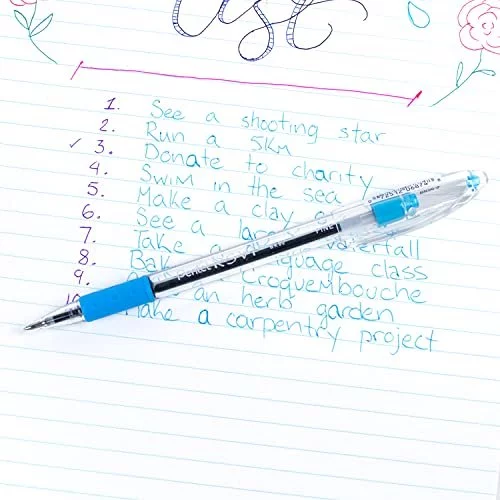 ist
1. See a shooting star
2. Run a 5KM
✓ 3. Donate to charity
4. Swim in the sea
5. Make a clay
6. See a waterfall
7. Take a language class
8. Croquembouche
9. an herb garden
10 a carpentry project
Pentel R.S.V.P. FINE